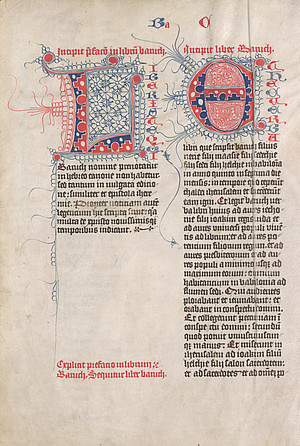 Ba C
Incipit prefacio in librum baruch.
LIBER ISTE QUI
Baruch nomine prenotatur
in hebreo canone non habetur
sed tantum in vulgata editio
ne: similiter et epistola ihere
mie. Propter noticiam autem
legentium hic scripta sunt: quia
multa de xpisto novissimisque
temporibus indicant.
Explicit prefacio in librum
Baruch. Sequitur liber baruch.
Incipit liber Baruch.
ET HEC VERBA
libri que scripsit baruch filius
nerie filij maasie filij sedechie
filij sedei filij helchie in babilonia
in anno quinto in septima die
mensis: in tempore quo ceperunt
chaldei iherusalem et succenderunt
eam igni. Et legit baruch ver
ba libri huius ad aures iecho
nie filij ioachim regis iuda et ad
aures universi populi venientis
ad librum: et ad aures potentium
filiorum regum: et ad aures
presbiterorum et ad aures
populi a minimo usque ad
maximum eorum: omnium
habitantium in babilonia ad
flumen sodi. Qui audientes
plorabant et ieiunabant: et
orabant in conspectu domini.
Et collegerunt pecuniam
secundum
quod potuit uniuscuiusque
manus: Et miserunt in
iherusalem ad ioachim filij
helchie filij salon sacerdotem:
et ad sacerdotes: et ad omnem po